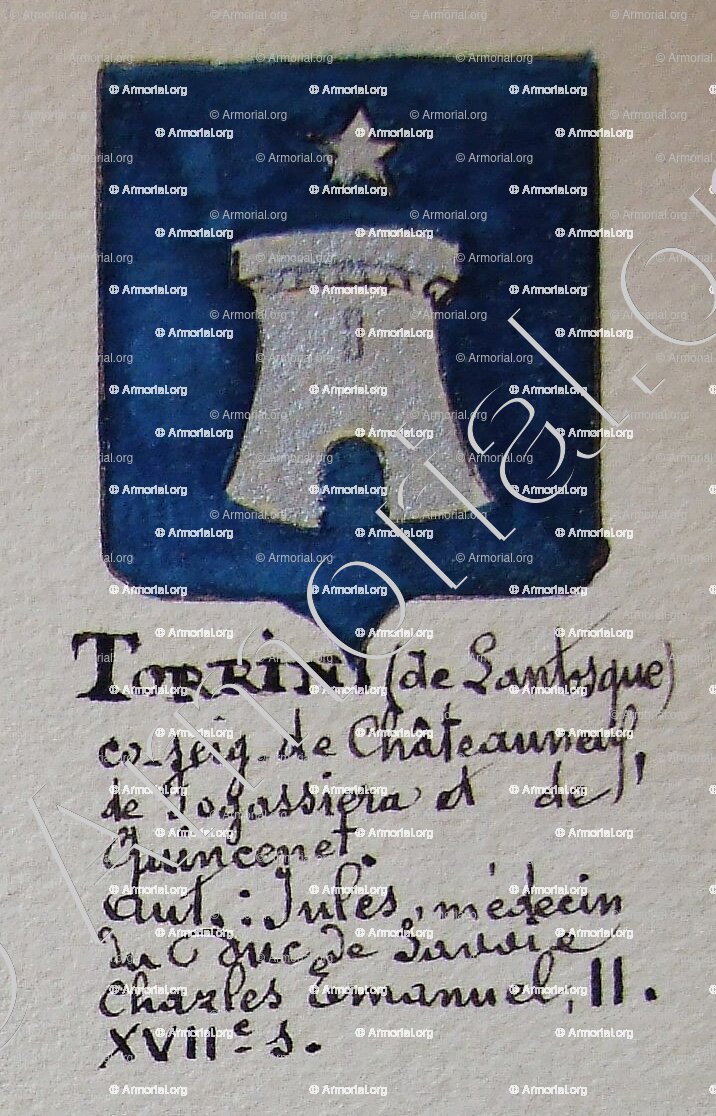 TORRINI (de Lantosque)
co-seig. de Châteauneuf,
de Fogassiera et de
Quincenet.
Aut.: Jules, médecin
du Duc de Savoie
Charles Emanuel, II.
XVIIe s.
© Armorial.org